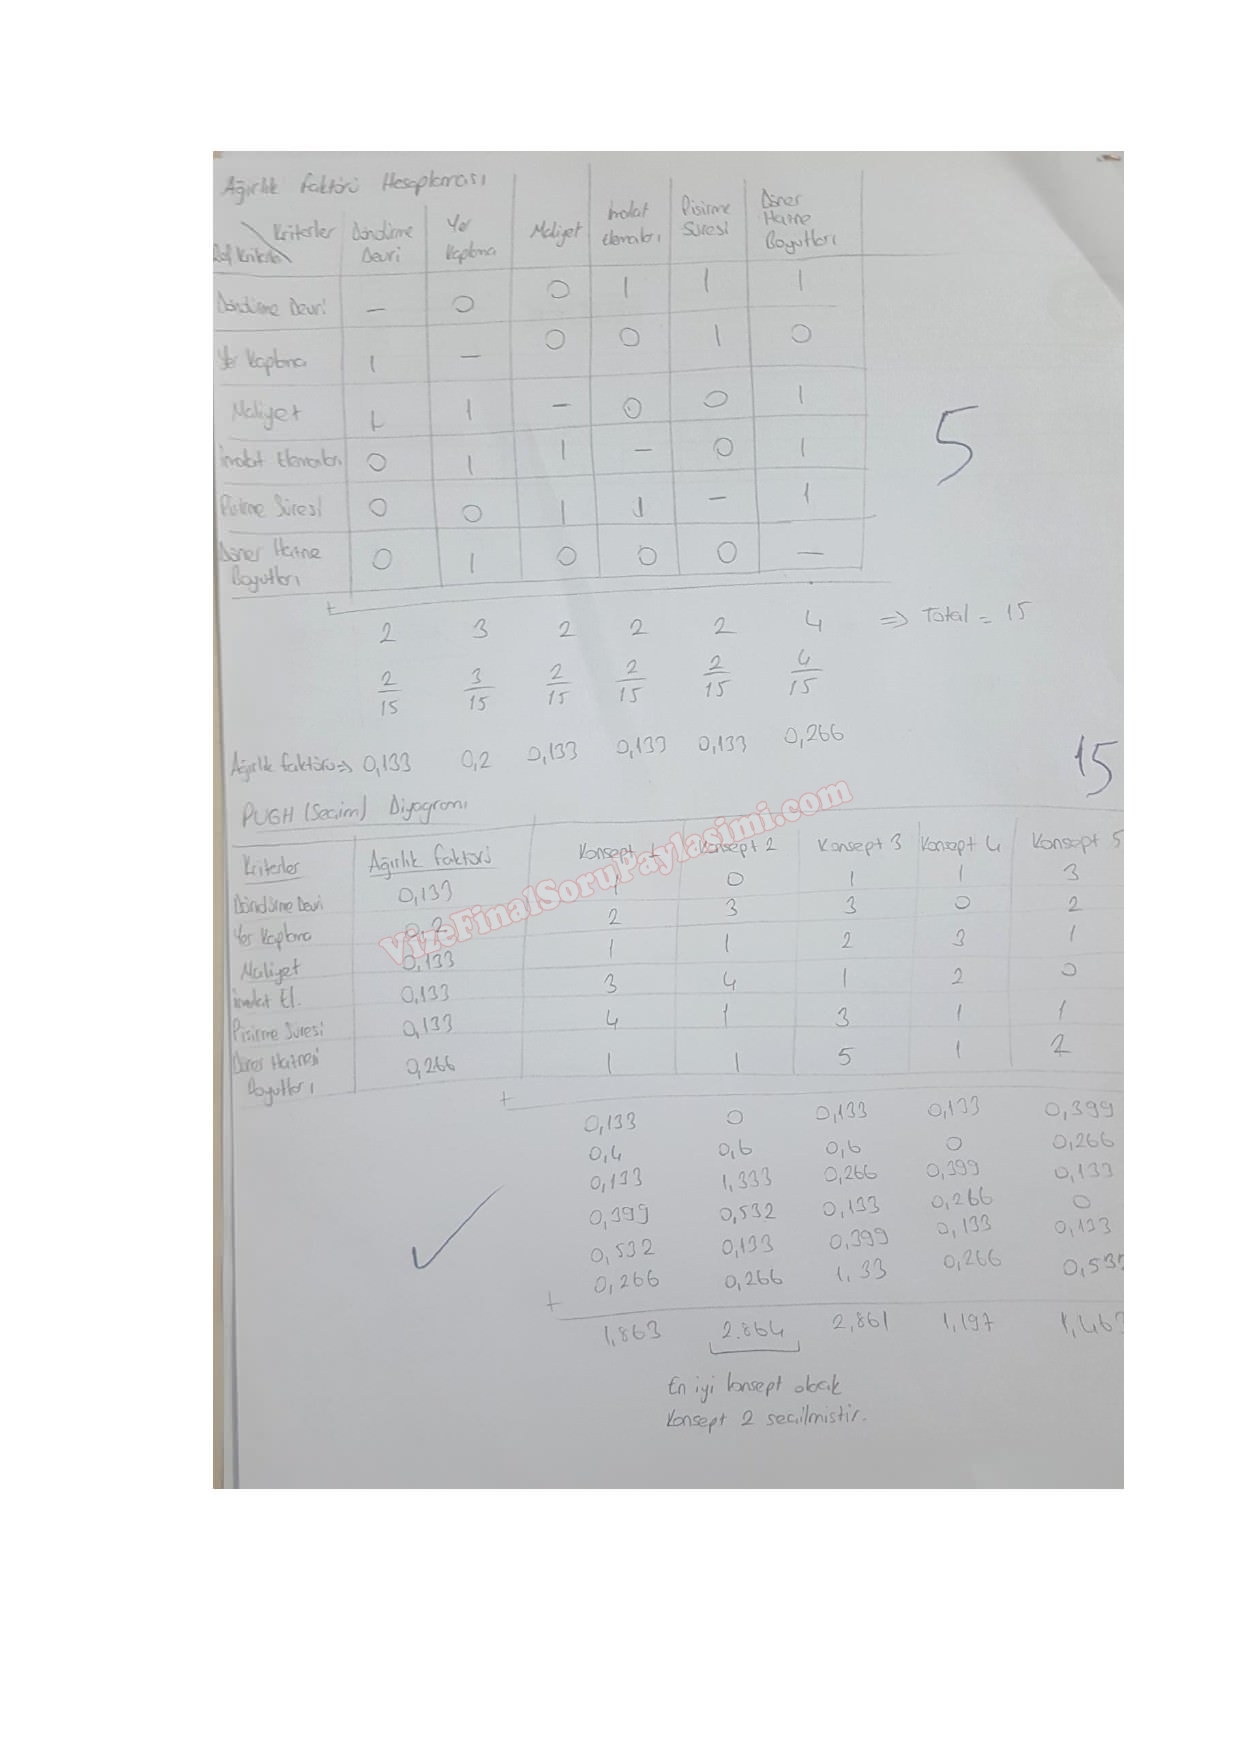 Ağırlık Faktörü Hesaplaması
Kriterler Döndürme Devri Yer Kaplama Maliyet İmalat Elemanları Pişirme Süresi Döner Hazne Boyutları
Ref Kriterler
Döndürme Devri — 0 0 1 1 1
Yer Kaplama 1 — 0 0 1 0
Maliyet 1 1 — 0 0 1
İmalat Elemanları 0 1 1 — 0 1
Pişirme Süresi 0 0 1 1 — 1
Döner Hazne Boyutları 0 1 0 0 0 —
+
2 3 2 2 2 4 => Total = 15
2/15 3/15 2/15 2/15 2/15 4/15
Ağırlık faktörü => 0,133 0,2 0,133 0,133 0,133 0,266
5
15
PUGH (Secim) Diyagramı
Kriterler Ağırlık Faktörü Konsept 1 Konsept 2 Konsept 3 Konsept 4 Konsept 5
Döndürme Devri 0,133 1 0 1 1 3
Yer Kaplama 0,2 2 3 3 0 2
Maliyet 0,133 1 1 2 3 1
İmalat El. 0,133 3 4 1 2 0
Pisirme Suresi 0,133 4 1 3 1 1
Döner Haznesi Boyutları 0,266 1 1 5 1 2
+
0,133 0 0,133 0,133 0,399
0,4 0,6 0,6 0 0,266
0,133 1,333 0,266 0,399 0,133
0,399 0,532 0,133 0,266 0
0,532 0,133 0,399 0,133 0,133
0,266 0,266 1,33 0,266 0,532
+
1,863 2.864 2,861 1,197 1,463
En iyi konsept olarak
Konsept 2 secilmistir.
VizeFinalSoruPaylasimi.com